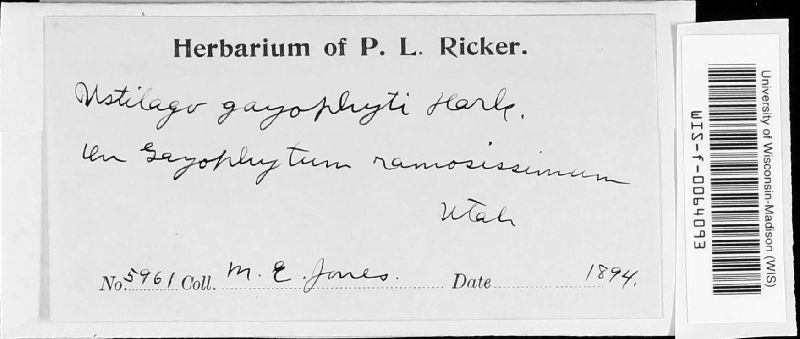 Herbarium of P. L. Ricker.
Ustilago gayophyti Hark.
On Gayophytum ramosissimum
Utah
No. 5961 Coll. M. E. Jones. Date 1894.
University of Wisconsin-Madison (WIS)
WIS-f-0064093